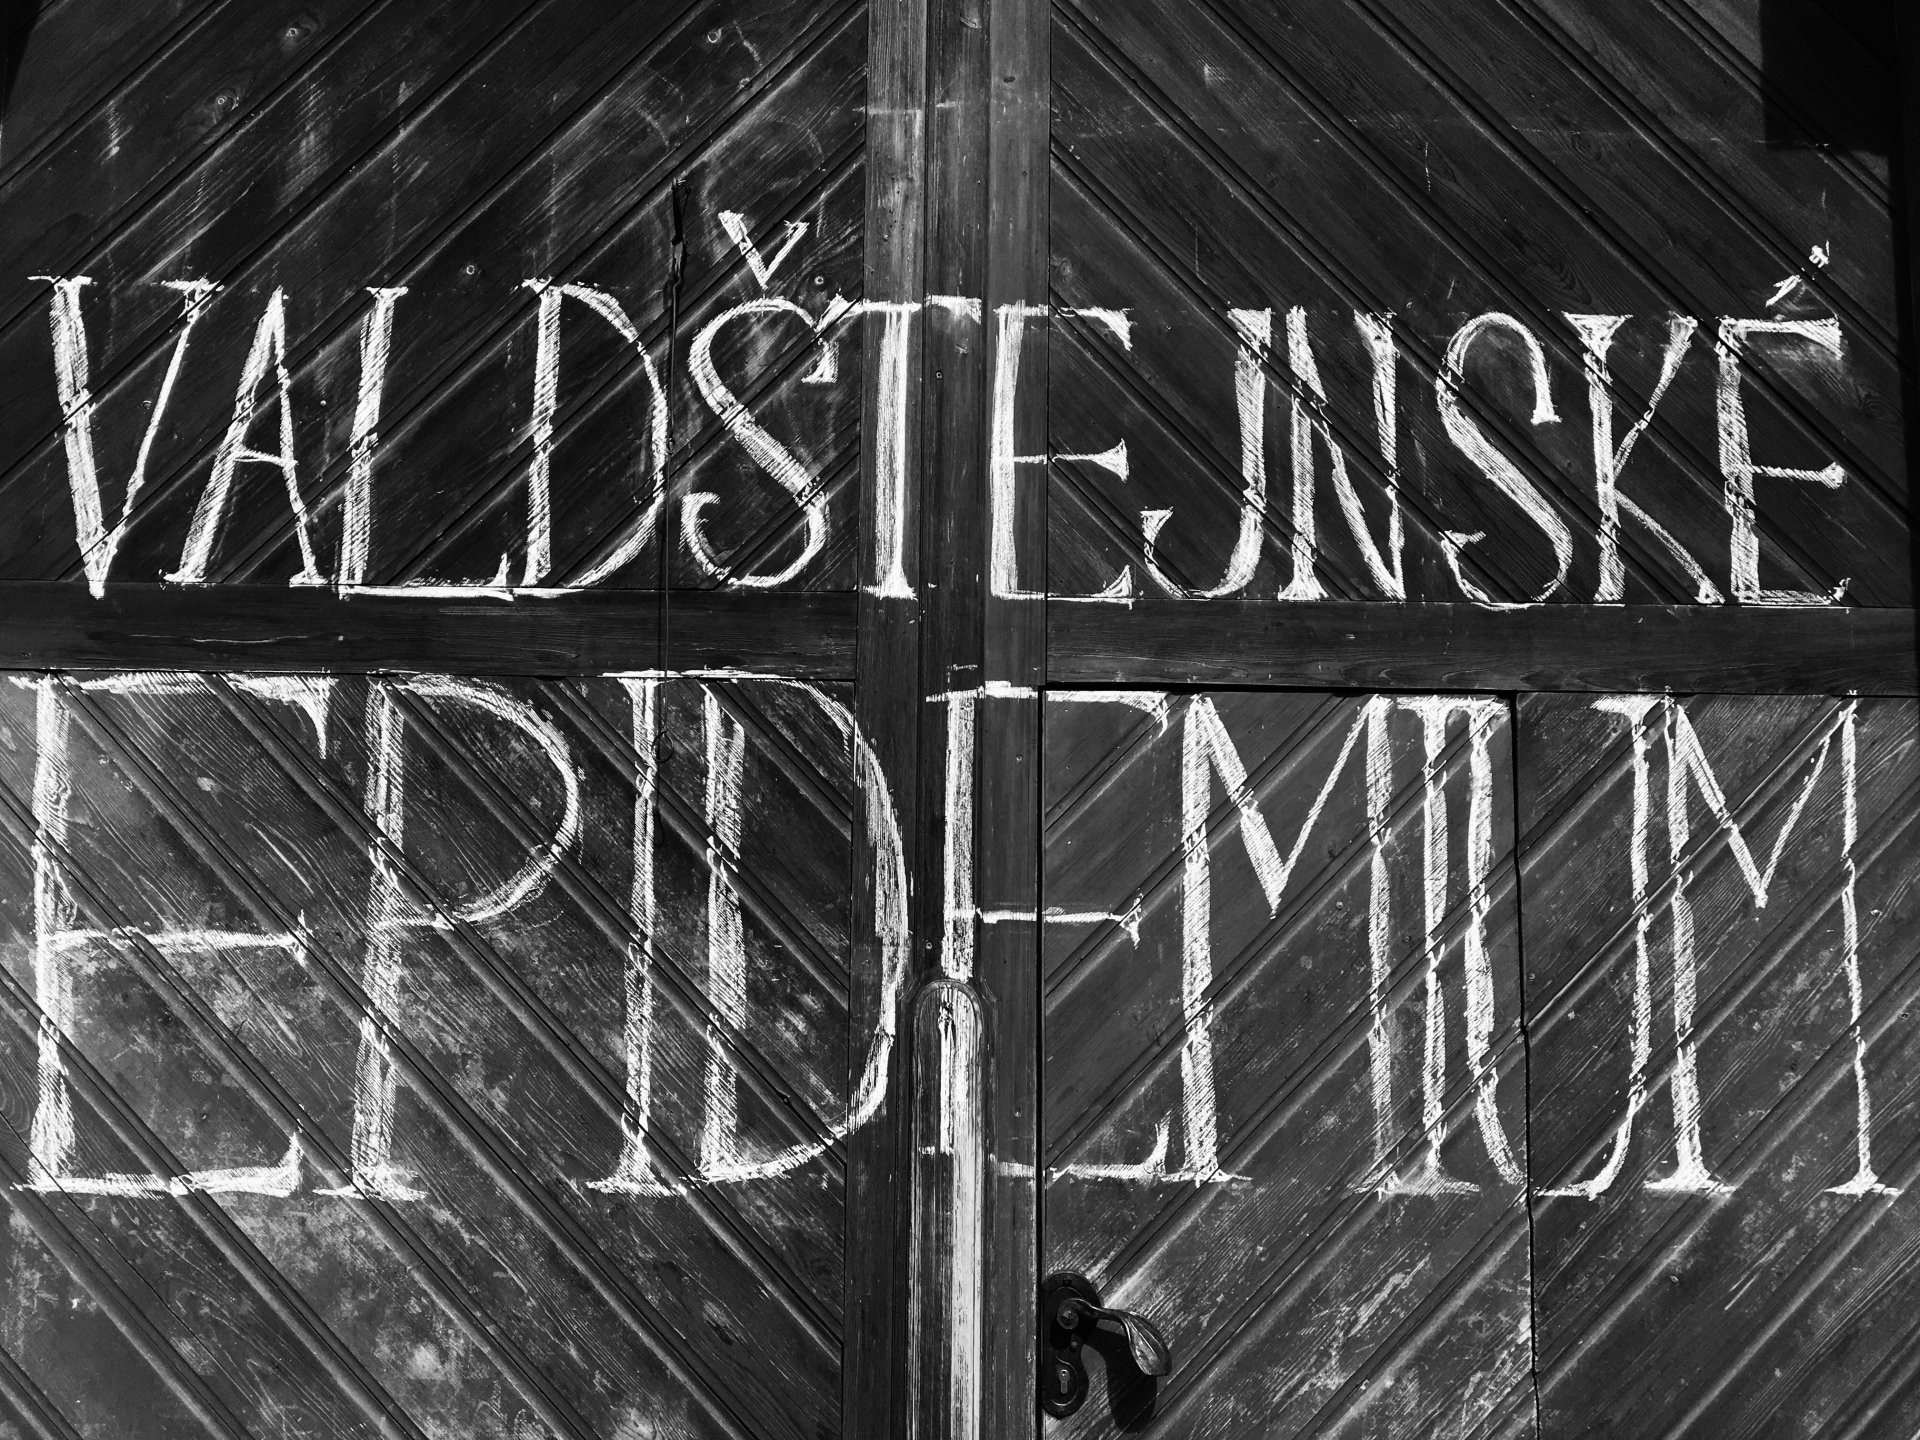 VALDŠTEJNSKÉ
EPIDEMIUM